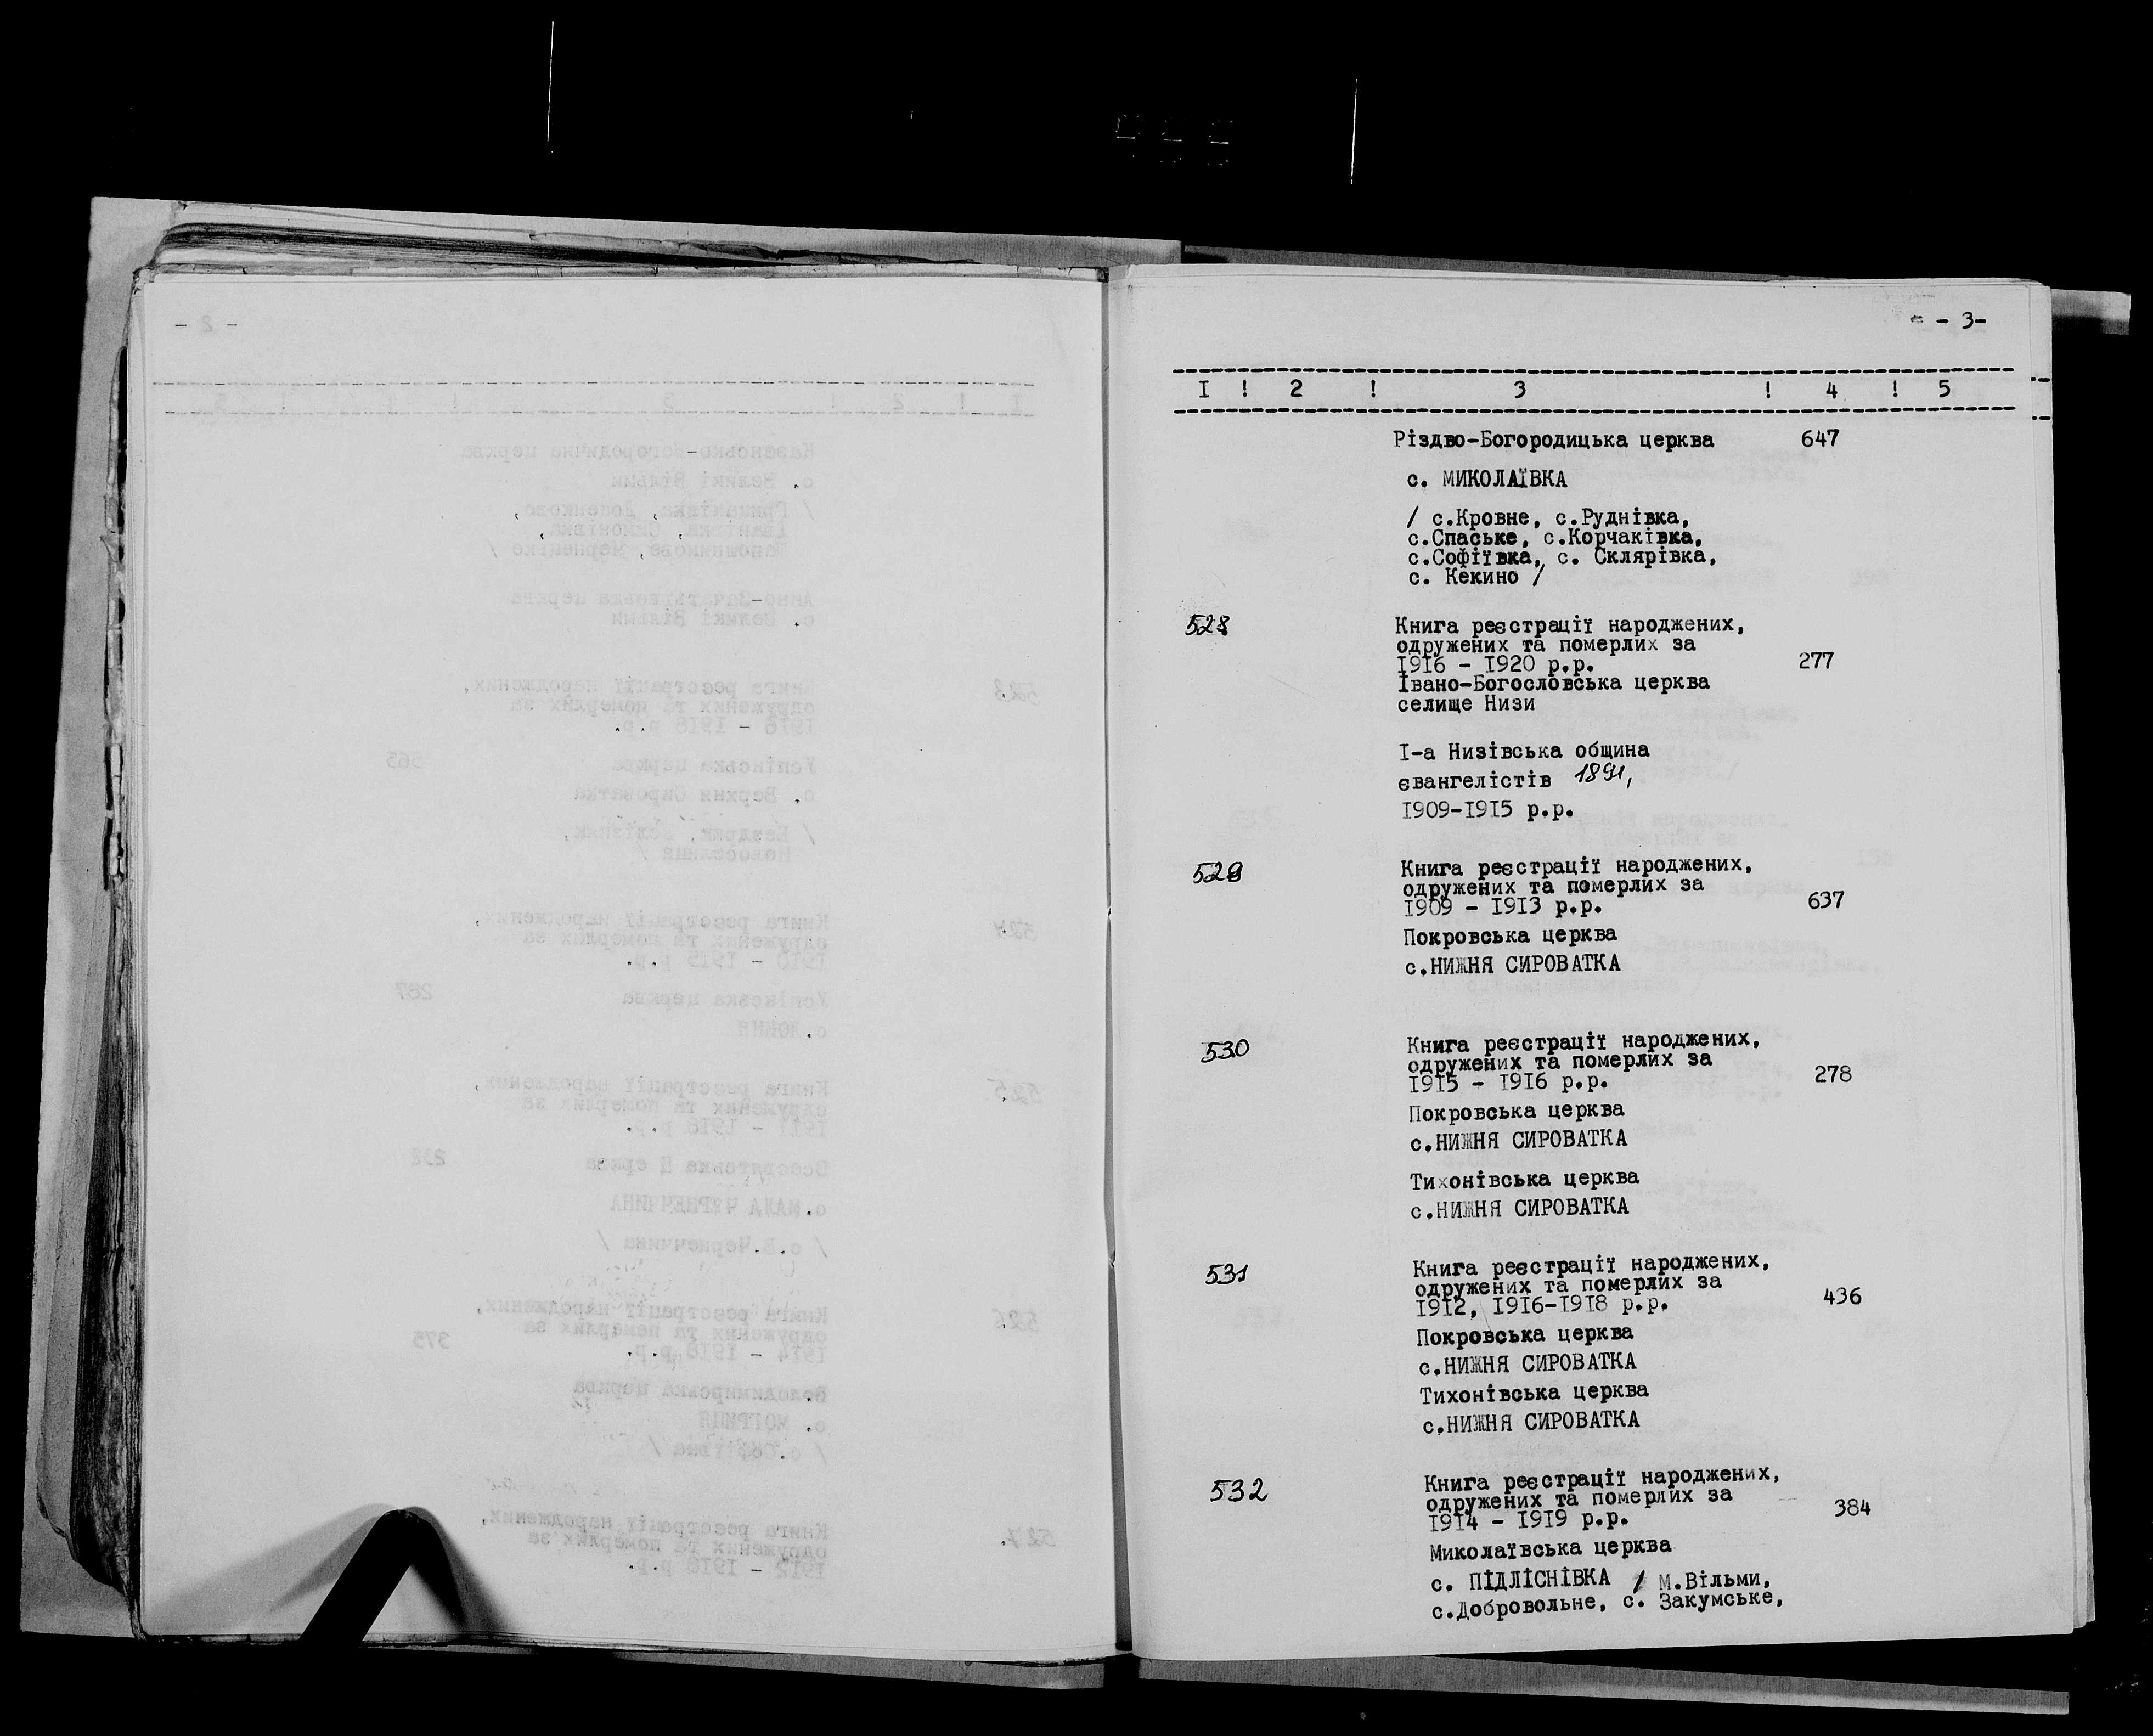 - 3-
I ! 2 ! 3 ! 4 ! 5
Різдво-Богородицька церква 647
с. МИКОЛАЇВКА
/ с.Кровне, с.Руднівка,
с.Спаське, с.Корчаківка,
с.Софіївка, с. Склярівка,
с. Кекино /
528 Книга реєстрації народжених,
одружених та померлих за
I9I6 - I920 р.р. 277
Івано-Богословська церква
селище Низи
I-а Низівська община
євангелістів 1891,
I909-I9I5 р.р.
529 Книга реєстрації народжених,
одружених та померлих за
I909 - I9I3 р.р. 637
Покровська церква
с.НИЖНЯ СИРОВАТКА
530 Книга реєстрації народжених,
одружених та померлих за
I9I5 - I9I6 р.р. 278
Покровська церква
с.НИЖНЯ СИРОВАТКА
Тихонівська церква
с.НИЖНЯ СИРОВАТКА
531 Книга реєстрації народжених,
одружених та померлих за
I9I2, I9I6-I9I8 р.р. 436
Покровська церква
с.НИЖНЯ СИРОВАТКА
Тихонівська церква
с.НИЖНЯ СИРОВАТКА
532 Книга реєстрації народжених,
одружених та померлих за
I9I4 - I9I9 р.р. 384
Миколаївська церква
с. ПІДЛІСНІВКА / М.Вільми,
с.Добровольне, с. Закумське,